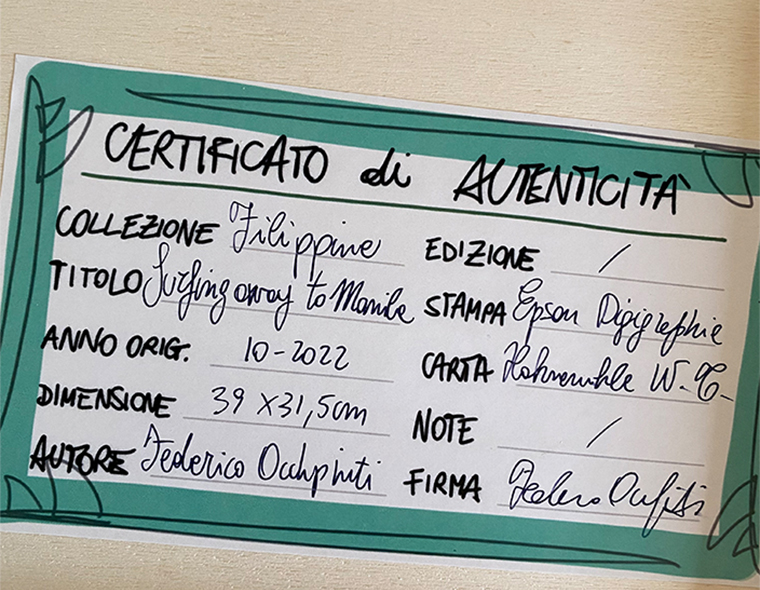 CERTIFICATO di AUTENTICITÀ
COLLEZIONE Filippine
TITOLO Surfing away to Manila
ANNO ORIG. 10-2022
DIMENSIONE 39 x 31,5cm
AUTORE Federico Occhipinti
EDIZIONE /
STAMPA Epson Digigraphie
CARTA Hahnemuhle W.C.
NOTE /
FIRMA